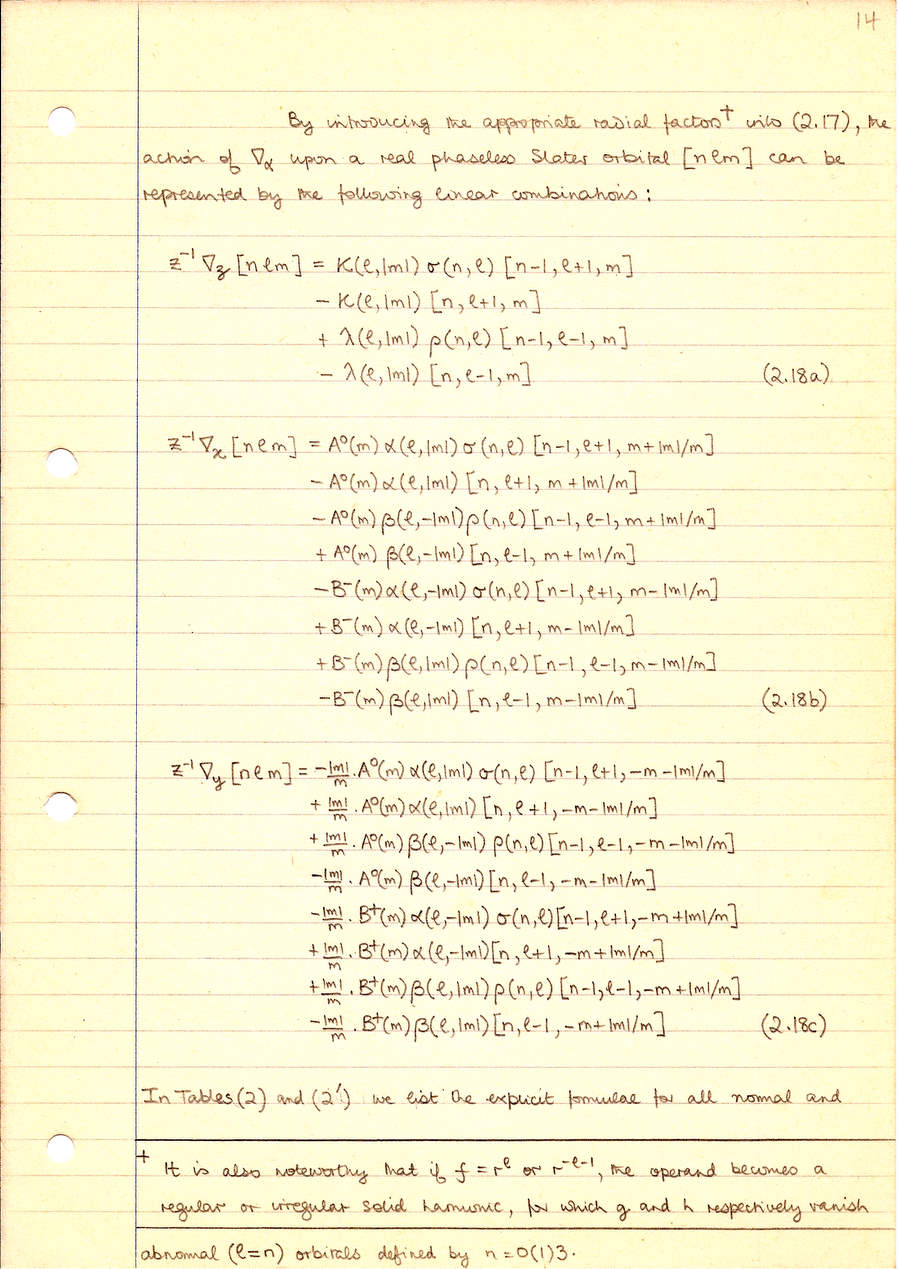 14
By introducing the appropriate radial factors† into (2.17), the
action of ∇α upon a real phaseless Slater orbital [nℓm] can be
represented by the following linear combinations:
z⁻¹ ∇z [nℓm] = K(ℓ,|m|) σ(n,ℓ) [n-1, ℓ+1, m]
− K(ℓ,|m|) [n, ℓ+1, m]
+ λ(ℓ,|m|) ρ(n,ℓ) [n-1, ℓ-1, m]
− λ(ℓ,|m|) [n, ℓ-1, m] (2.18a)
z⁻¹ ∇x [nℓm] = A⁰(m) α(ℓ,|m|) σ(n,ℓ) [n-1, ℓ+1, m+|m|/m]
− A⁰(m) α(ℓ,|m|) [n, ℓ+1, m+|m|/m]
− A⁰(m) β(ℓ,-|m|) ρ(n,ℓ) [n-1, ℓ-1, m+|m|/m]
+ A⁰(m) β(ℓ,-|m|) [n, ℓ-1, m+|m|/m]
− B⁻(m) α(ℓ,-|m|) σ(n,ℓ) [n-1, ℓ+1, m-|m|/m]
+ B⁻(m) α(ℓ,-|m|) [n, ℓ+1, m-|m|/m]
+ B⁻(m) β(ℓ,|m|) ρ(n,ℓ) [n-1, ℓ-1, m-|m|/m]
− B⁻(m) β(ℓ,|m|) [n, ℓ-1, m-|m|/m] (2.18b)
z⁻¹ ∇y [nℓm] = −|m|/m . A⁰(m) α(ℓ,|m|) σ(n,ℓ) [n-1, ℓ+1, -m-|m|/m]
+ |m|/m . A⁰(m) α(ℓ,|m|) [n, ℓ+1, -m-|m|/m]
+ |m|/m . A⁰(m) β(ℓ,-|m|) ρ(n,ℓ) [n-1, ℓ-1, -m-|m|/m]
− |m|/m . A⁰(m) β(ℓ,-|m|) [n, ℓ-1, -m-|m|/m]
− |m|/m . B⁺(m) α(ℓ,-|m|) σ(n,ℓ) [n-1, ℓ+1, -m+|m|/m]
+ |m|/m . B⁺(m) α(ℓ,-|m|) [n, ℓ+1, -m+|m|/m]
+ |m|/m . B⁺(m) β(ℓ,|m|) ρ(n,ℓ) [n-1, ℓ-1, -m+|m|/m]
− |m|/m . B⁺(m) β(ℓ,|m|) [n, ℓ-1, -m+|m|/m] (2.18c)
In Tables (2) and (2′) we list the explicit formulae for all normal and
† It is also noteworthy that if f = r^ℓ or r^-ℓ-1, the operand becomes a
regular or irregular solid harmonic, for which g and h respectively vanish
abnomal (ℓ=n) orbitals defined by n=0(1)3.